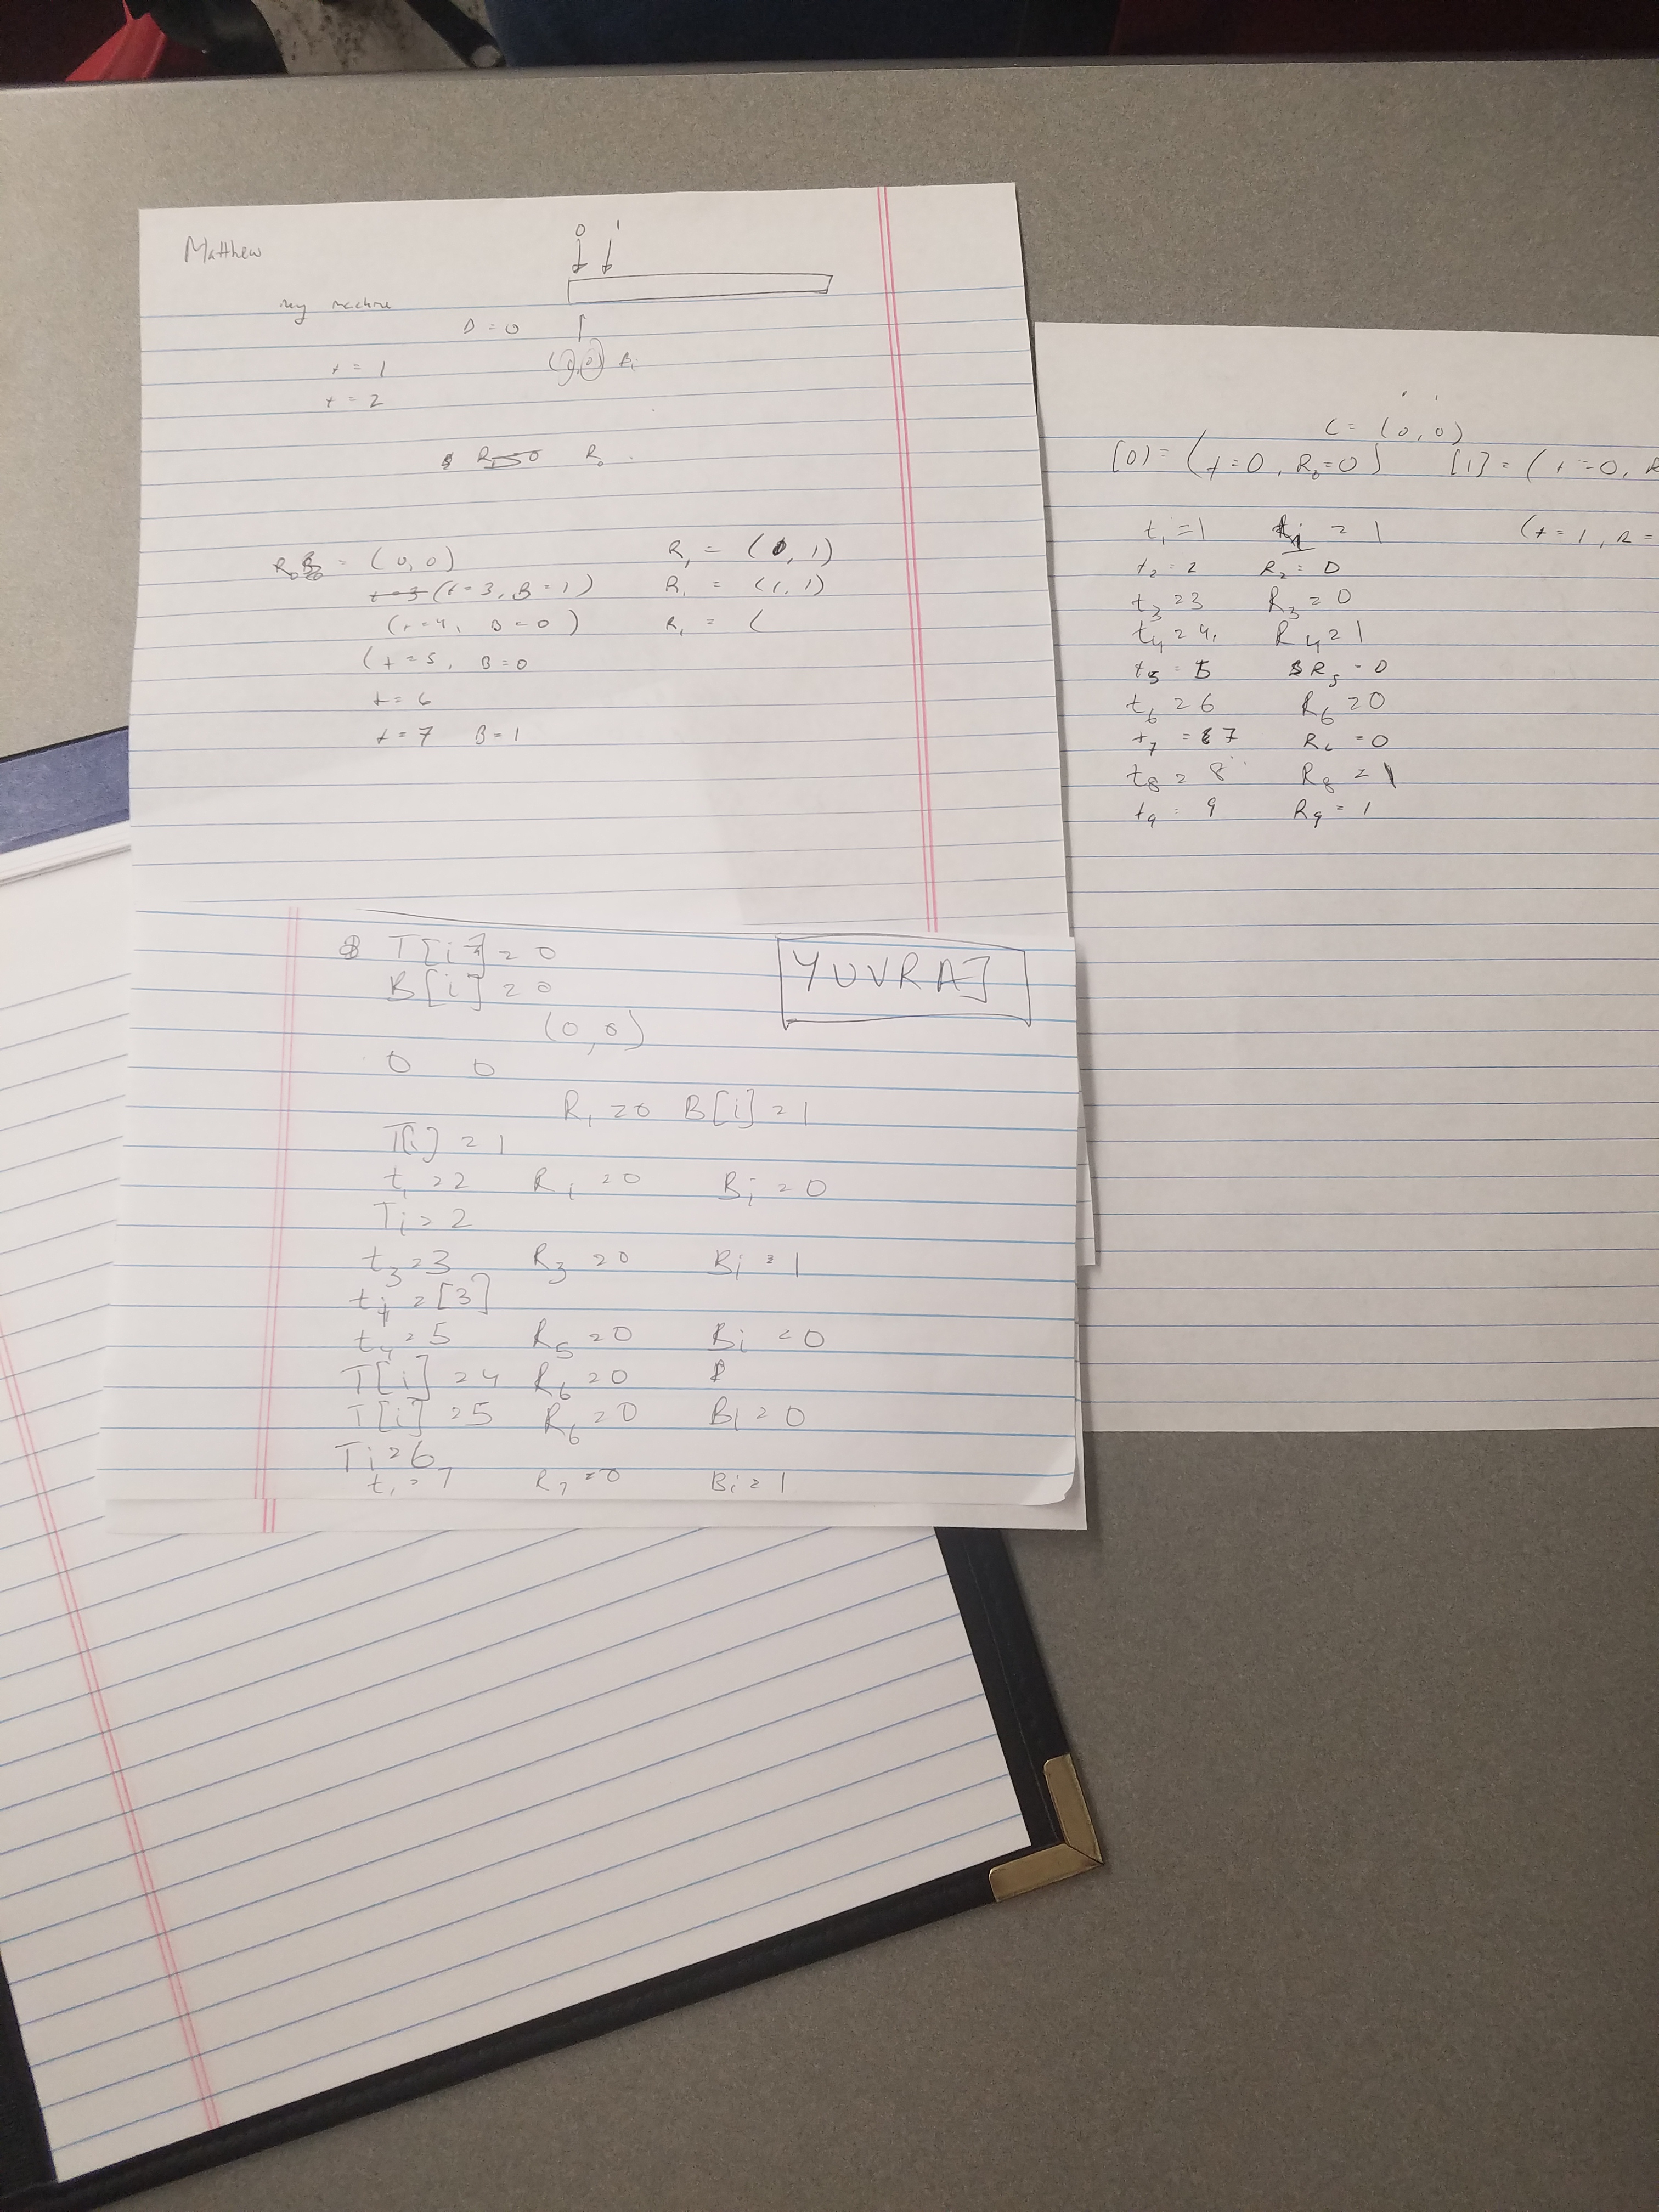 Matthew
0 1
my machine
D = 0
(0, 0) Bi
t = 1
t = 2
R₀
R₀ = (0,0) R₁ = (0, 1)
(t=3, B=1) R₁ = (1, 1)
(t=4, B=0) R₁ = (
(t=5, B=0
t=6
t=7 B=1
C = (0,0)
[0] = (t=0, R₀=0) [1] = (t=0, R
t₁=1 R₁ = 1 (t=1, R=
t₂=2 R₂=0
t₃=3 R₃=0
t₄=4, R₄=1
t₅=5 R₅=0
t₆=6 R₆=0
t₇=7 R₆=0
t₈=8 R₈=1
t₉=9 R₉=1
YUVRAJ
T[i]=0
B[i]=0
(0,0)
0 0
R₁=0 B[i]=1
T[i]=1
t₁=2 Ri=0 Bi=0
Ti=2
t₃=3 R₃=0 Bi=1
=[3]
t₄=5 R₅=0 Bi=0
T[i]=4 R₆=0
T[i]=5 R₆=0 Bi=0
Ti=6
t₁=7 R₇=0 Bi=1